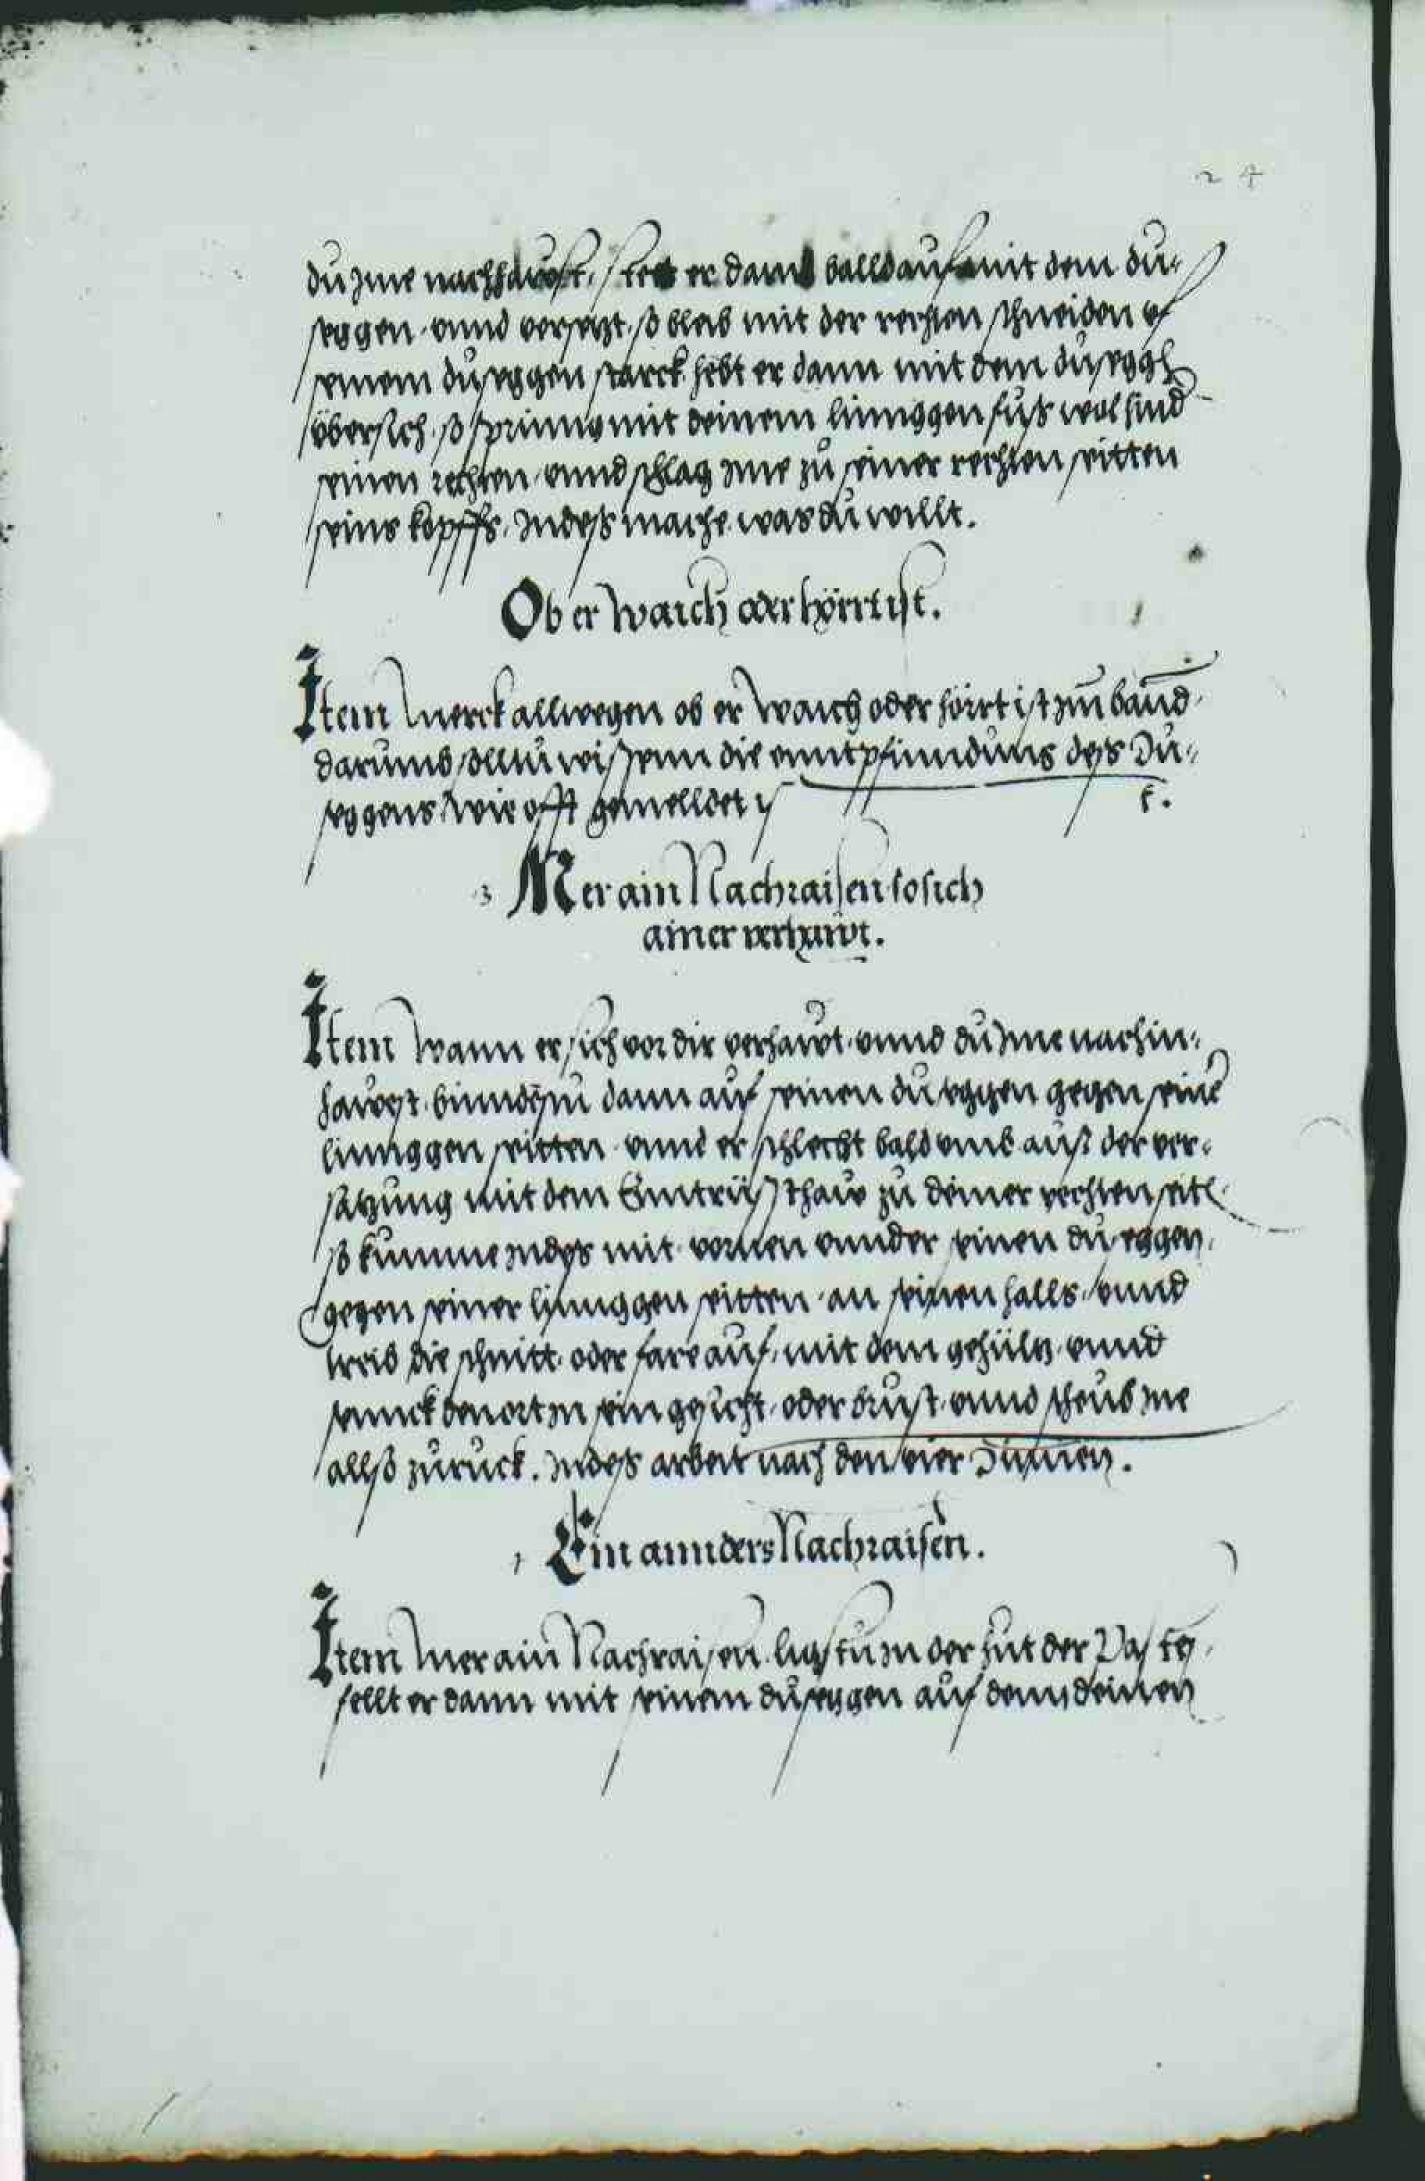 24
du Ime nachhawst, fert er dann balld auf mit dem du⸗
seggen vnnd versetzt, so bleib mit der rechten schneiden vf
seinem duseggen starck, hebt er dann mit dem duseggē
vbersich, so spring mit deinem linnggen fuß wol hind
seinen rechten vnnd schlag Ime zu seiner rechten seitten
seins kopffs, Indeß mache was du willt.
Ob er waich oder hörrt ist.
Item merck allwegen ob er waich oder hörrt ist Im bannd
darumb solltu wissenn die enntpfinndung deß Du⸗
seggens wie offt gemelldet ꝛc.
3 Mer ain Nachraisen so sich
ainer verhawt.
Item wann er sich vor dir verhawt vnnd du Ime nachin⸗
hawest, binndestu dann auf seinen duseggen gegen seinē
linnggen seitten vnnd er schlecht bald vmb auß der ver⸗
satzung mit dem Enntrüsthaw zu deiner rechten seitē
so kumme Indeß mit vornen vnnder seinen duseggen,
gegen seiner linnggen seitten an seinen halls, vnnd
treib die schnitt oder fare auf, mit dem gehültz, vnnd
sennck den ort In sein gesicht, oder brust, vnnd scheub Ine
allso zuruck. Indeß arbeit nach den vier Dingen.
Ein annders Nachraisen.
Item mer ain Nachraisen ligstu In der hut der Pastey,
fellt er dann mit seinem duseggen auf den deinen